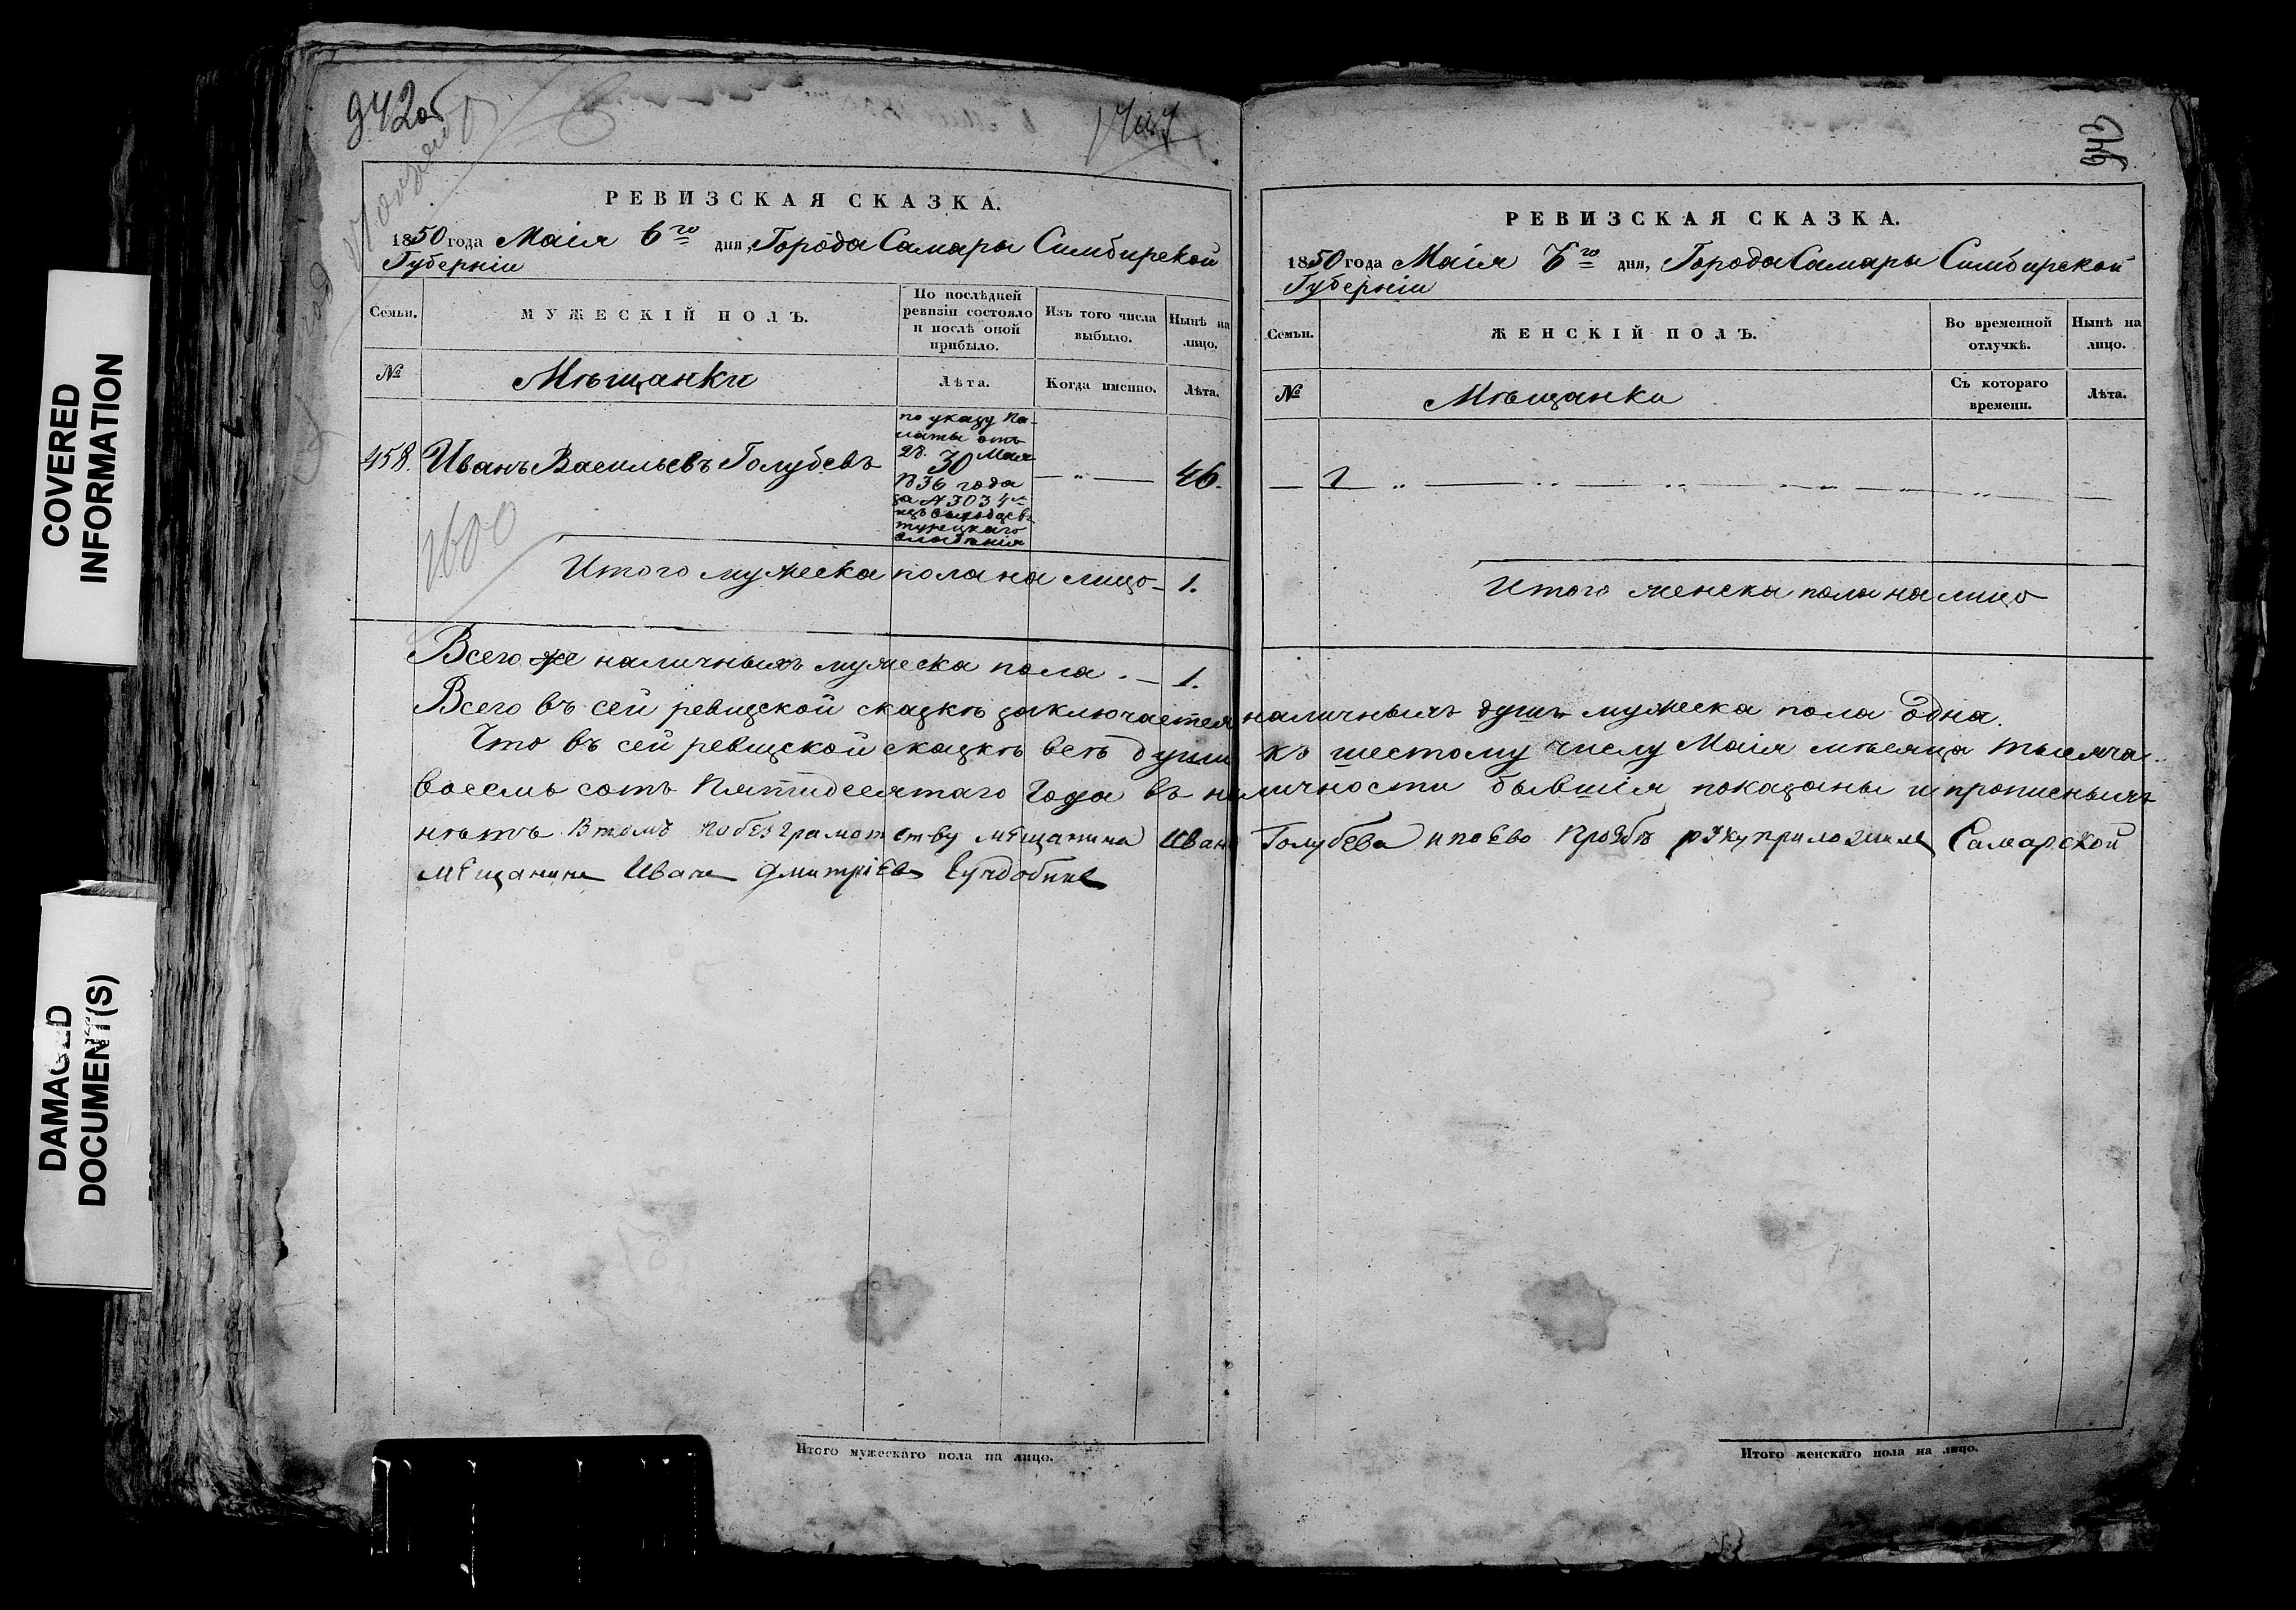 COVERED
INFORMATION
DAMAGED
DOCUMENT(S)
942об
РЕВИЗСКАЯ СКАЗКА.
1850 года Маія 6го дня, Города Самары Симбирской
Губерніи
Семьи. МУЖЕСКІЙ ПОЛЪ. По послѣдней ревизіи состояло и послѣ оной прибыло. Изъ того числа выбыло. Нынѣ на лицо.
№ Мѣщанки Лѣта. Когда именно. Лѣта.
458. Иванъ Васильевъ Голубевъ 46.
по указу Па-
латы отъ
28. Мая
30
1836 года
за № 3034м
изъ
турецкаго
владѣнія
1600
Итого мужеска пола на лицо 1.
Всего же наличныхъ мужеска пола . — 1.
РЕВИЗСКАЯ СКАЗКА.
1850 года Маія 6го дня, Города Самары Симбирской
Губерніи
Семьи. ЖЕНСКІЙ ПОЛЪ. Во временной отлучкѣ. Нынѣ на лицо.
№ Мѣщанки Съ котораго времени. Лѣта.
Итого женска пола на лицо
Всего въ сей ревизской сказкѣ заключается наличныхъ душъ мужеска пола Одна.
Что въ сей ревизской сказкѣ всѣ души къ шестому числу Маія мѣсяца тысяча
восемь сотъ Пятидесятаго Года въ наличности бывшія показаны и прописныхъ
нѣтъ Втомъ побезграмотству мѣщанина Иван Голубева ипоево прозбѣ руку приложилъ Самарской
мѣщанинъ Иванъ Дмитріевъ
Итого мужескаго пола на лицо.
Итого женскаго пола на лицо.